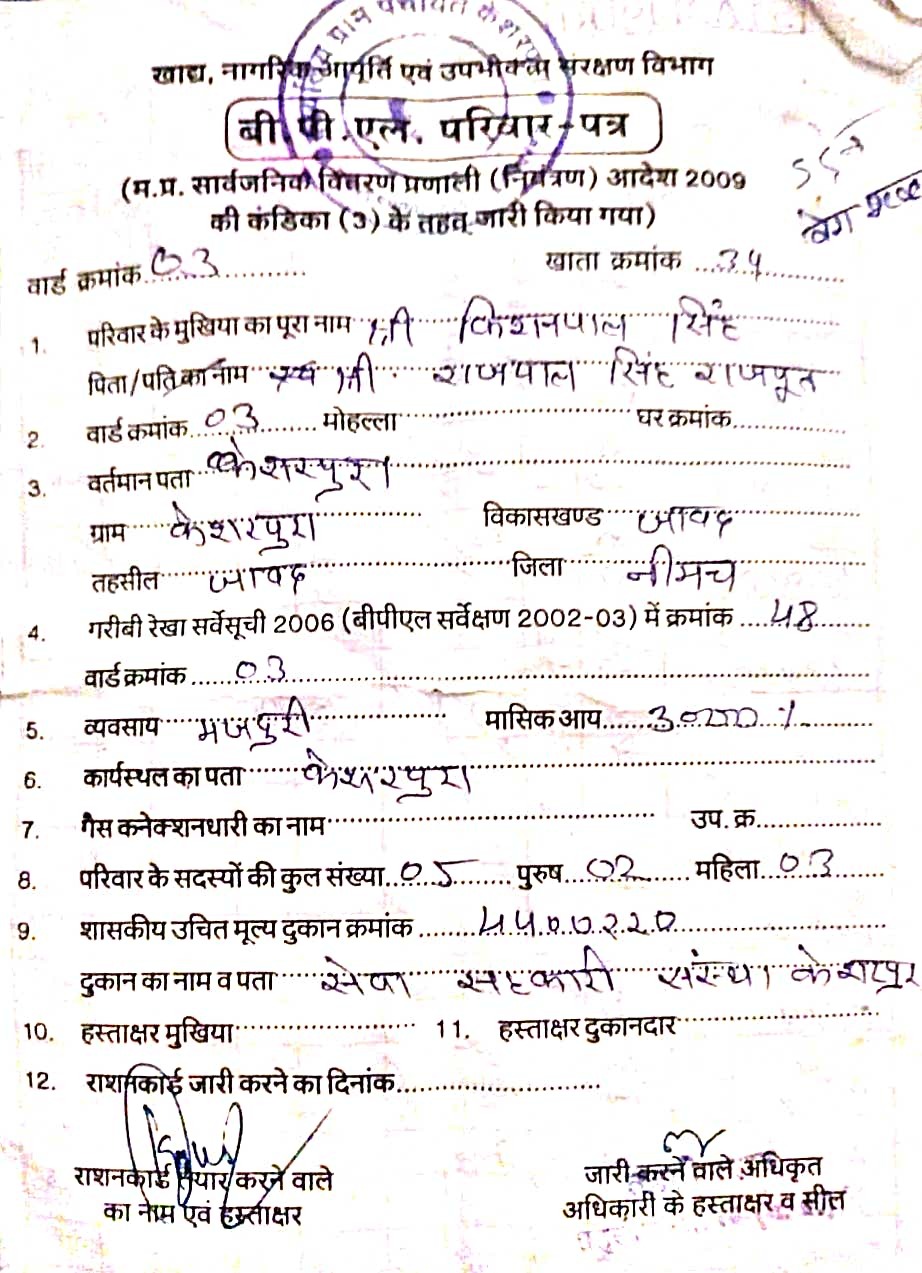 ग्राम पंचायत केशरपुरा
खाद्य, नागरिक आपूर्ति एवं उपभोक्ता संरक्षण विभाग
बी.पी.एल. परिवार-पत्र
(म.प्र. सार्वजनिक वितरण प्रणाली (नियंत्रण) आदेश 2009
की कंडिका (3) के तहत जारी किया गया)
वार्ड क्रमांक 03 खाता क्रमांक 34
1. परिवार के मुखिया का पूरा नाम श्री किशनपाल सिंह
पिता/पति का नाम स्व श्री राजपाल सिंह राजपूत
2. वार्ड क्रमांक 03 मोहल्ला घर क्रमांक
3. वर्तमान पता केशरपुरा
ग्राम केशरपुरा विकासखण्ड जावद
तहसील जावद जिला नीमच
4. गरीबी रेखा सर्वेसूची 2006 (बीपीएल सर्वेक्षण 2002-03) में क्रमांक 48
वार्ड क्रमांक 03
5. व्यवसाय मजदुरी मासिक आय
6. कार्यस्थल का पता केशरपुरा
7. गैस कनेक्शनधारी का नाम उप. क्र.
8. परिवार के सदस्यों की कुल संख्या 05 पुरुष 02 महिला 03
9. शासकीय उचित मूल्य दुकान क्रमांक 4400220
दुकान का नाम व पता सेवा सहकारी संस्था केशरपुर
10. हस्ताक्षर मुखिया 11. हस्ताक्षर दुकानदार
12. राशनकार्ड जारी करने का दिनांक
राशनकार्ड तैयार करने वाले जारी करने वाले अधिकृत
का नाम एवं हस्ताक्षर अधिकारी के हस्ताक्षर व सील